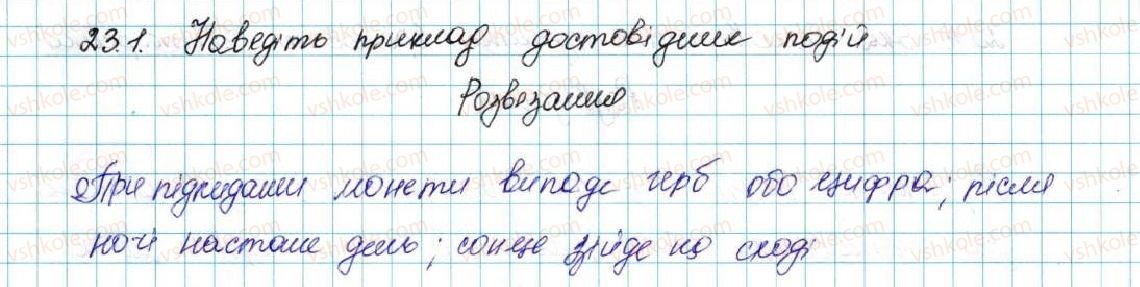 23.1. Наведіть приклад достовірних подій.
Розв'язання
При підкиданні монети випаде герб або цифра; після
ночі настане день; сонце зійде на сході